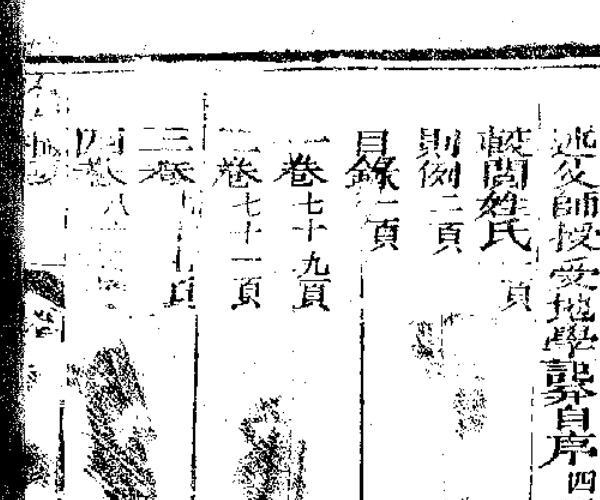 述父師授受地學記并自序四
較閱姓氏一頁
則例二頁
目錄二頁
一卷七十九頁
二卷七十一頁
三卷七十七頁
四卷八十